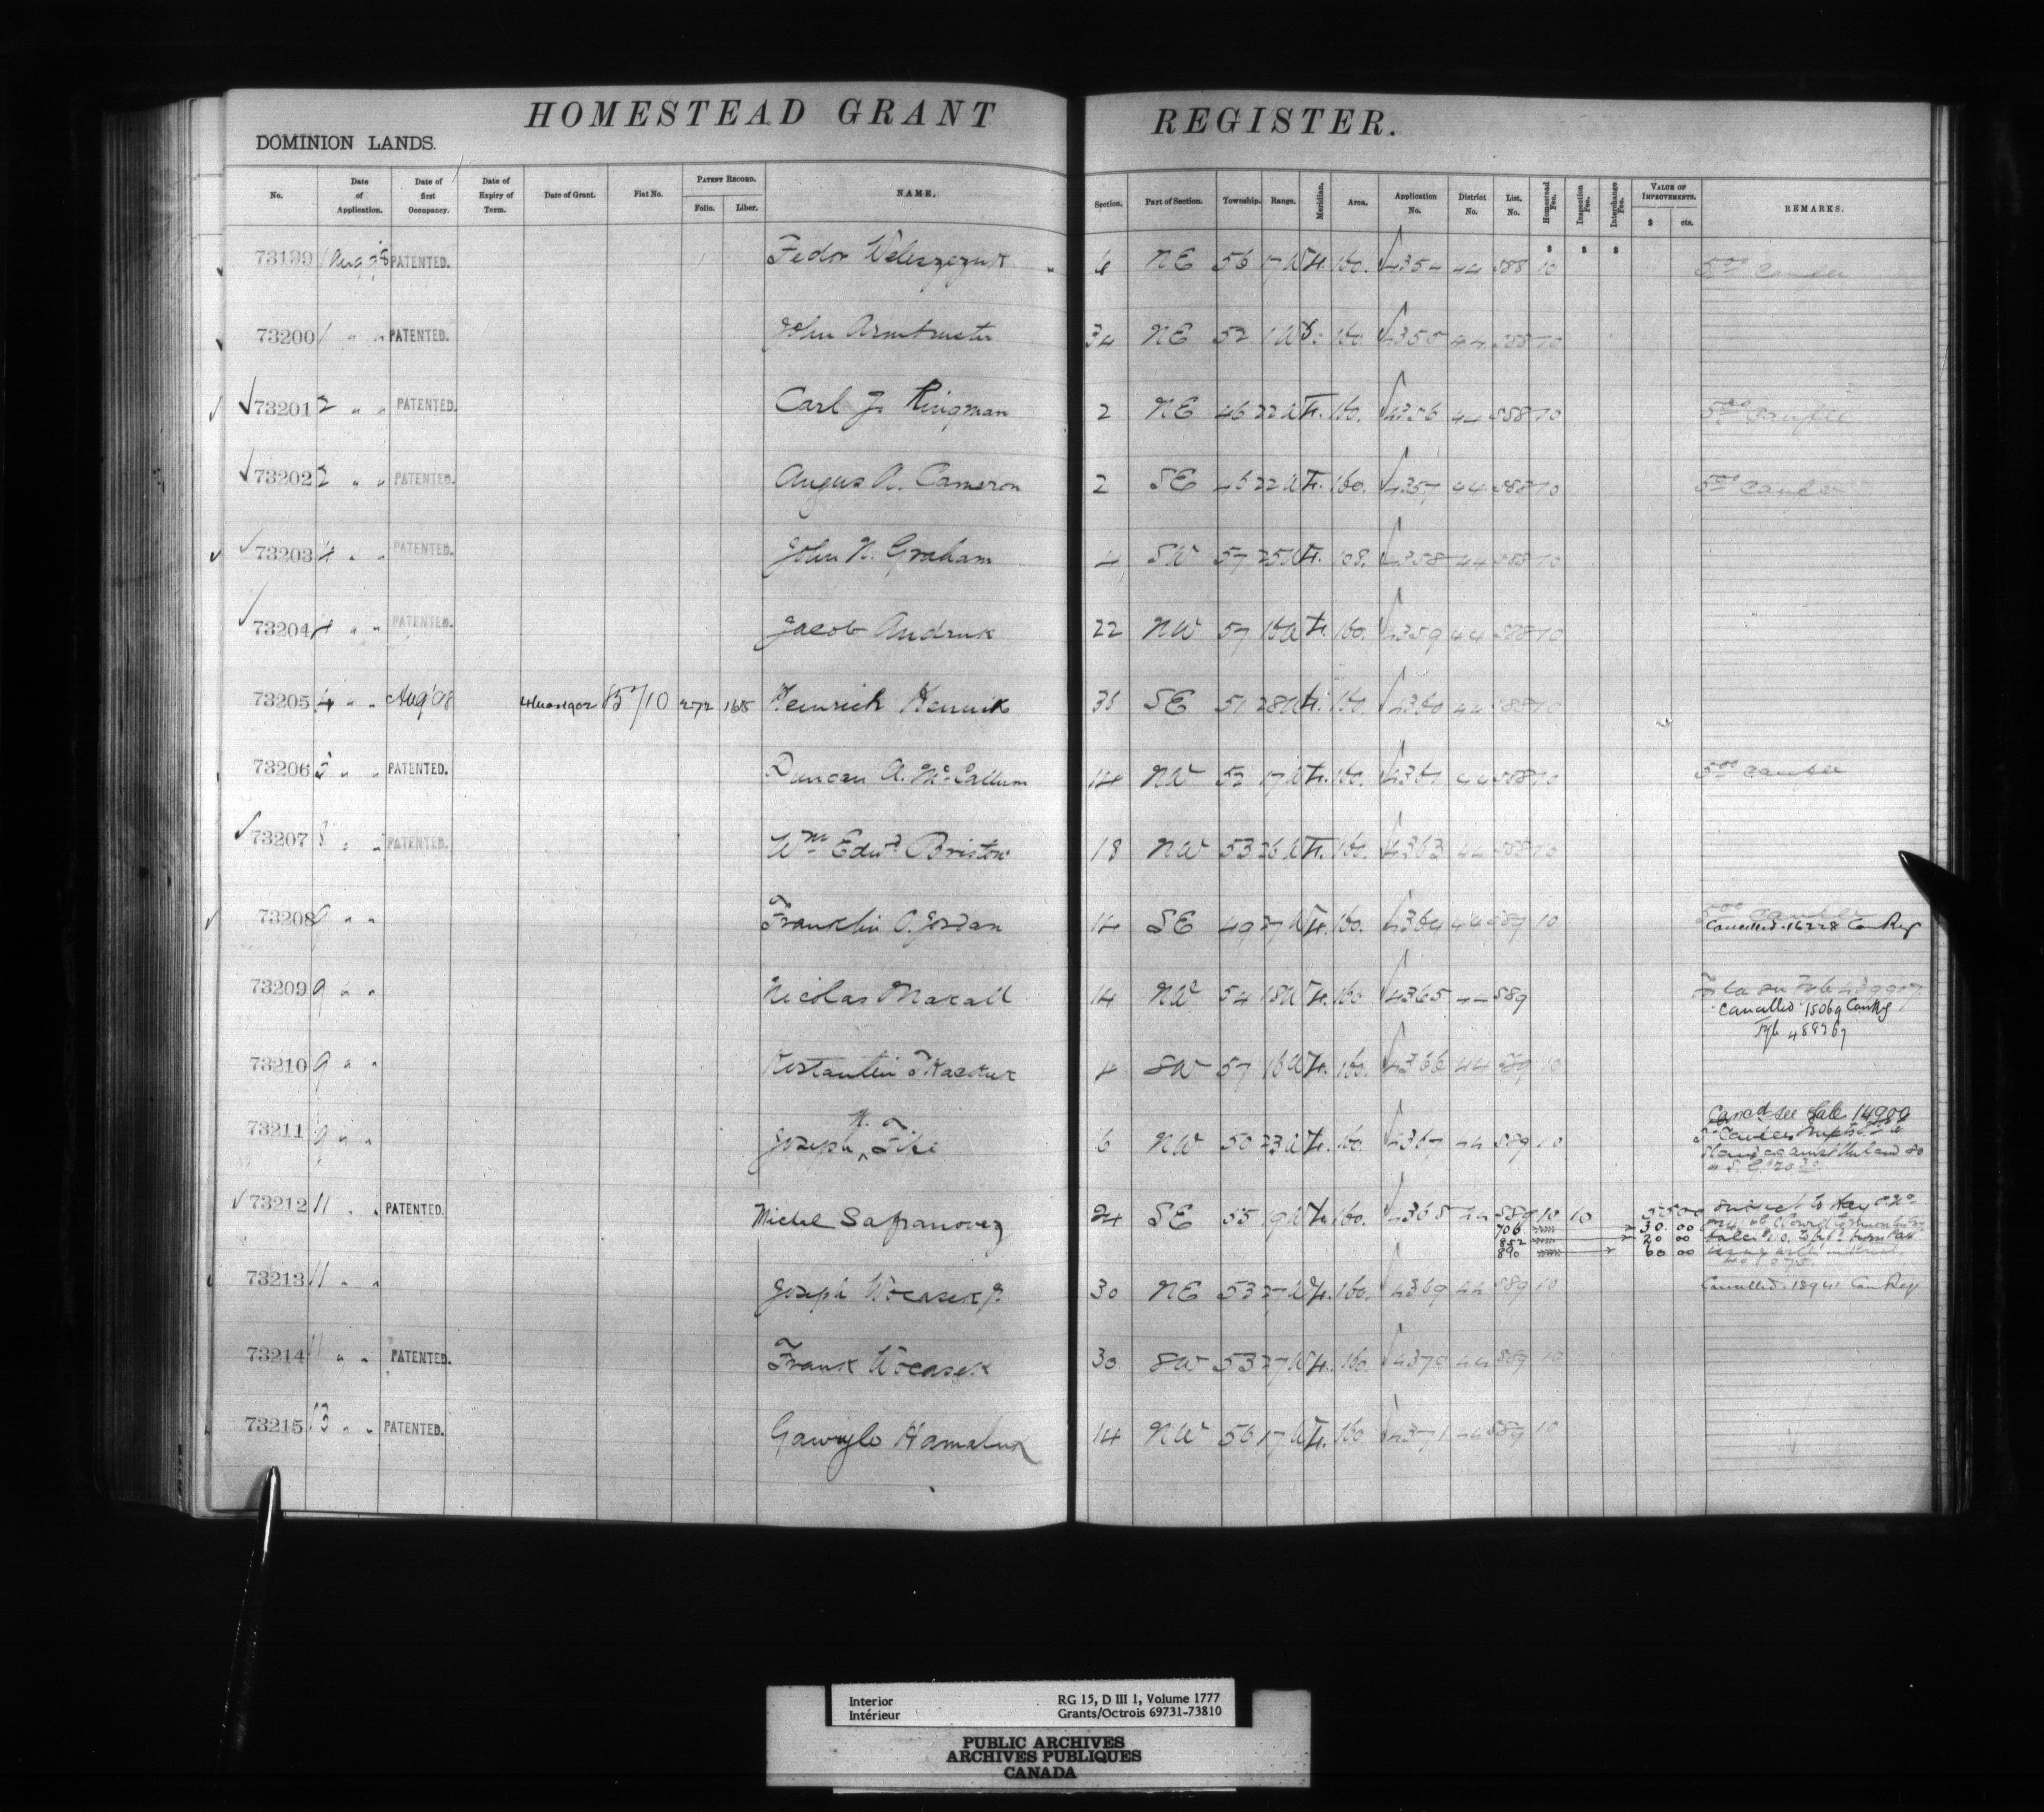 HOMESTEAD GRANT REGISTER.
DOMINION LANDS.
No. Date of Application. Date of first Occupancy. Date of Expiry of Term. Date of Grant. Fiat No. PATENT RECORD. Folio. Liber. NAME. Section. Part of Section. Township. Range. Meridian. Area. Application No. District No. List. No. Homestead Fee. Inspection Fee. Interchange Fee. VALUE OF IMPROVEMENTS. $ cts. REMARKS.
73199 1 Aug 98 PATENTED. Fedor 6 NE 56 17 W 4. 160. 4354 44 588 10
73200 1 " " PATENTED. John Armbruster 34 NE 52 1 W 160. 4355 44 588 10
73201 2 " " PATENTED. Carl J. Ringman 2 NE 46 22 W 4. 160. 4356 44 588 10 5 00
73202 2 " " PATENTED. Angus A. Cameron 2 SE 46 22 W 4. 160. 4357 44 588 10 5 00
73203 4 " " PATENTED. John N. Graham 4 SW 57 25 W 4. 108. 4358 44 588 10
73204 4 " " PATENTED. Jacob Andruk 22 NW 57 16 W 4. 160. 4359 44 588 10
73205 4 " " Aug '98 272 Heinrich Hennik SE 51 28 W 4. 160. 4360 44 588 10
73206 5 " " PATENTED. Duncan A. McCallum 14 NW 17 W 4. 160. 4361 44 588 10 5 00
73207 8 " " PATENTED. Wm Edwd Bristow 18 NW 53 26 W 4. 160. 4363 44 588 10
73208 9 " " Franklin O. Jordan 14 SE 49 27 W 4. 160. 4364 44 589 10
Cancelled. 16228 Can Reg
73209 9 " " Nicolas Makall 14 NW 54 18 W 4. 160 4365 44 589
Cancelled 15069 Can Reg
73210 9 " " Kostantin Tkaczuk 4 SW 57 16 W 4. 160. 4366 44 589 10
73211 9 " " Joseph H. 6 NW 50 23 W 4. 160. 4367 44 589 10
see Sale 14900
73212 11 " " PATENTED. Michel Safranovez 24 SE 55 19 W 4. 160. 4368 44 589 10 10
706 30. 00
852 20 00
890 60 00
73213 11 " " Joseph Wocasek Jr. 30 NE 53 27 W 4. 160. 4369 44 589 10 Cancelled. 18941 Can Reg
73214 11 " " PATENTED. Frank Wocasek 30 SW 53 27 W 4. 160 4370 44 589 10
73215 13 " " PATENTED. Gawrylo Hamaluk 14 NW 56 17 W 4. 160 4371 44 589 10
Interior RG 15, D III 1, Volume 1777
Intérieur Grants/Octrois 69731-73810
PUBLIC ARCHIVES
ARCHIVES PUBLIQUES
CANADA